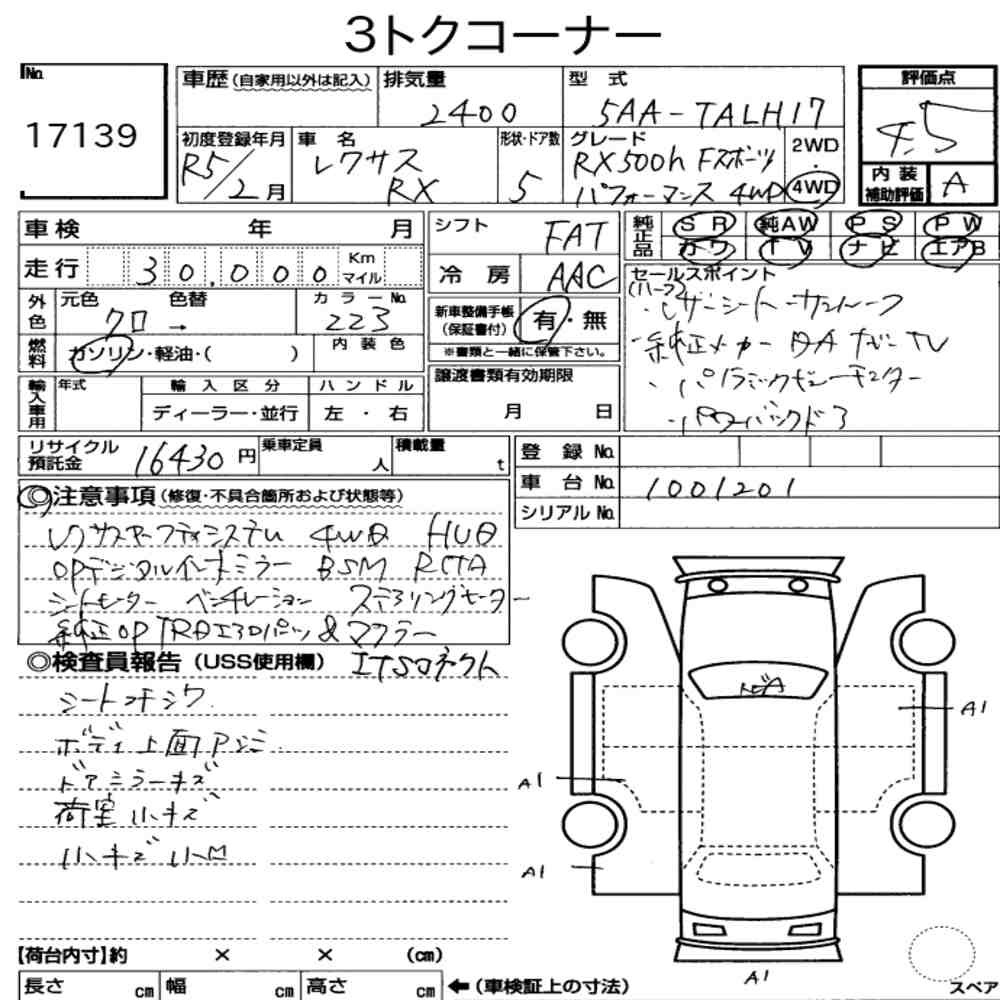 3トクコーナー
No.
17139
車歴(自家用以外は記入) 排気量 2400 型式 5AA-TALH17
評価点 4.5
初度登録年月 R5/2月 車名 レクサス RX 形状・ドア数 5 グレード RX500h Fスポーツ パフォーマンス 4WD 2WD・4WD
内装補助評価 A
車検 年 月 シフト FAT 純正品 SR 純AW PS PW
カワ TV ナビ エアB
走行 30,000 Km マイル 冷房 AAC
セールスポイント
(ハーフ)
・レザーシート・サンルーフ
・純正メーカーDAナビTV
・パノラミックビューモニター
・パワーバックドア
外色 元色 クロ → 色替 カラーNo. 223 新車整備手帳(保証書付) 有・無
燃料 ガソリン・軽油・( ) 内装色 ※書類と一緒に保管下さい。
輸入車用 年式 輸入区分 ハンドル 譲渡書類有効期限
ディーラー・並行 左・右 月 日
リサイクル預託金 16430円 乗車定員 人 積載量 t
登録No.
車台No. 1001201
シリアルNo.
◎注意事項(修復・不具合箇所および状態等)
レクサスセーフティシステム 4WD HUD
OPデジタルインナーミラー BSM RCTA
シートヒーター ベンチレーション ステアリングヒーター
純正OP TRDエアロパーツ&マフラー
ITSコネクト
◎検査員報告(USS使用欄)
シートコキシワ
ボディ上面アシミ
ドアミラーキズ
荷室小キズ
小キズ小凹
トビA
A1
A1
A1
A1
【荷台内寸】約 × × (cm)
長さ cm 幅 cm 高さ cm ←(車検証上の寸法)
スペア